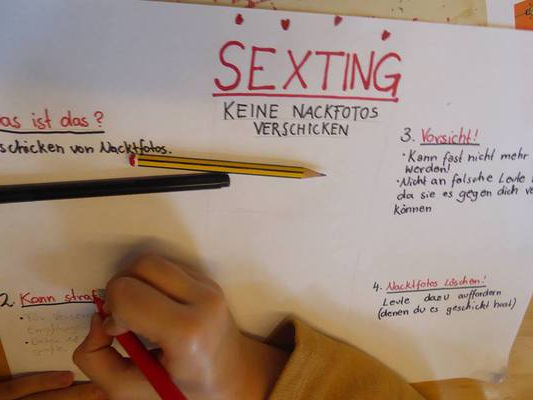 SEXTING
KEINE NACKFOTOS
VERSCHICKEN
as ist das?
schicken von Nacktfotos.
2. Kann straf
3. Vorsicht!
• Kann fast nicht mehr
werden!
• Nicht an falsche Leute
da sie es gegen dich
können
4. Nacktfotos Löschen!
Leute dazu auffordern
(denen du es geschickt hast)